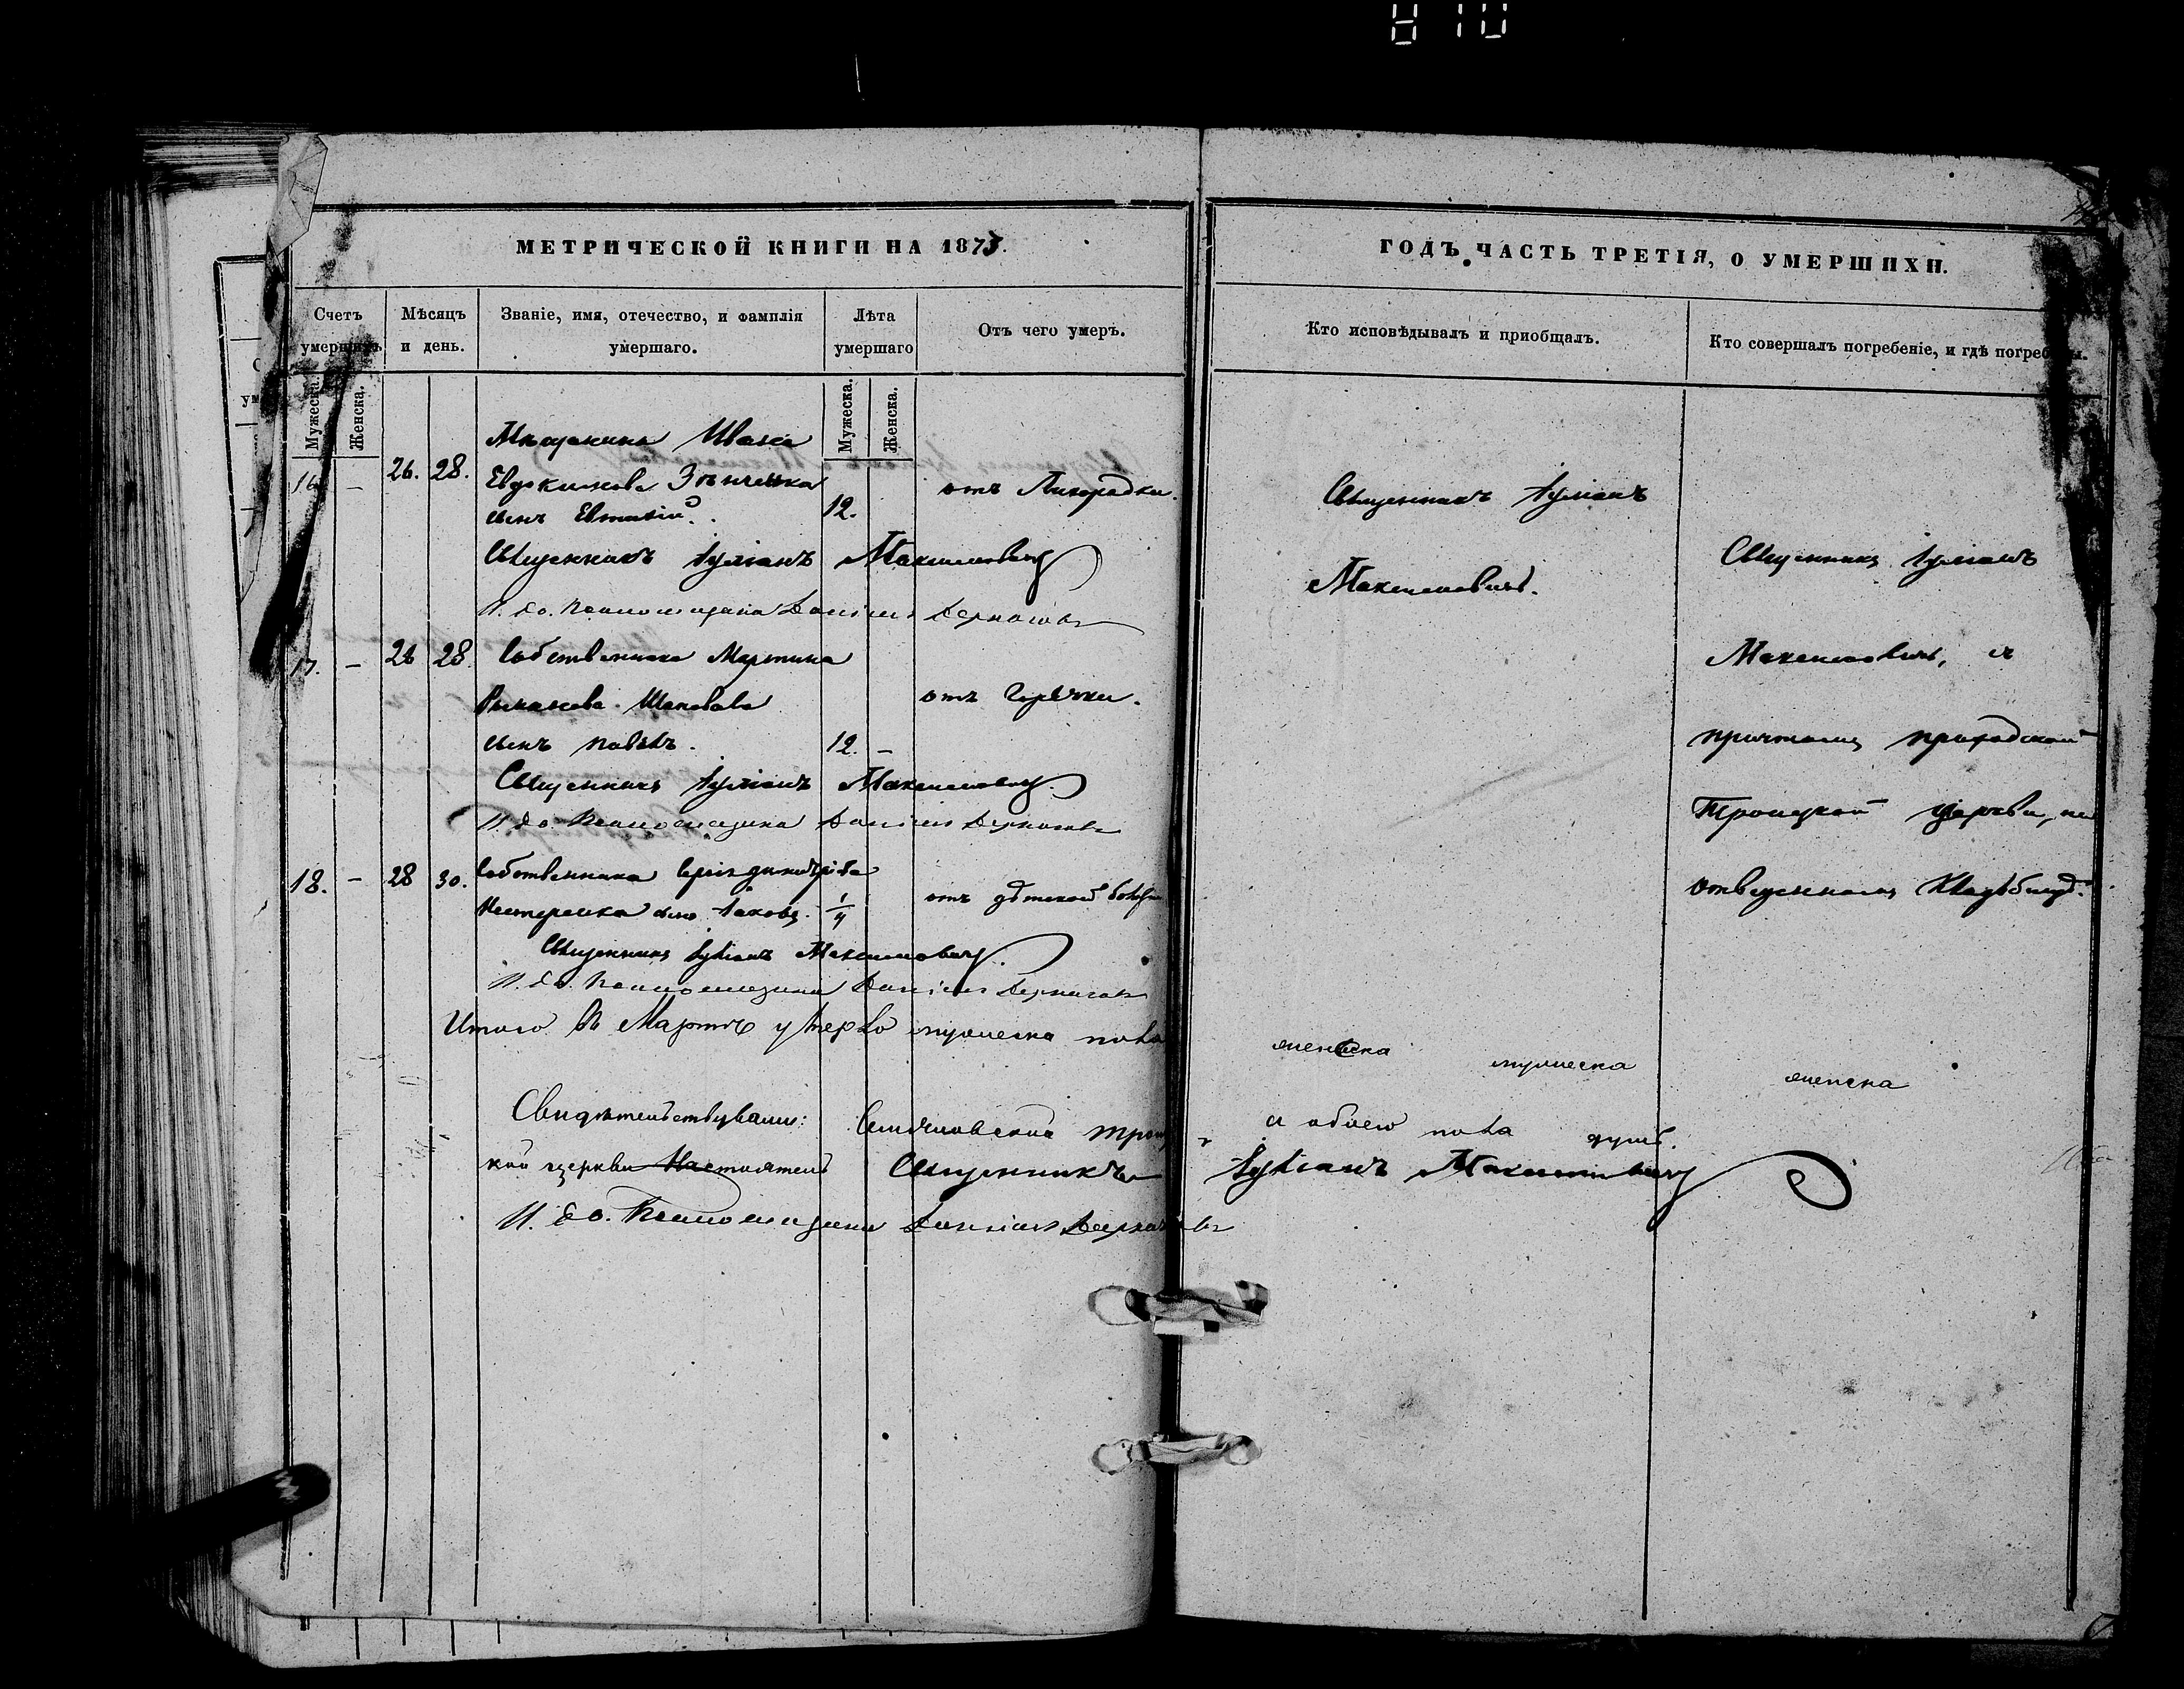 МЕТРИЧЕСКОЙ КНИГИ НА 1873.
Счетъ умершихъ
Мѣсяцъ и день.
Званіе, имя, отечество, и фамилія умершаго.
Лѣта умершаго
Отъ чего умеръ.
Мужеска.
Женска.
Мужеска.
Женска.
Мѣщанина Ивана
16. – 26. 28. Евдокимова
отъ Лихорадки.
сынъ Евтихій. 12.
Священникъ Іуліанъ Максимовичъ
И. до. Псаломщика
17. – 26 28. Собственника Мартина
Шаповала отъ Горячки.
сынъ Павелъ. 12. –
Священникъ Іуліанъ Максимовичъ
И. до. Псаломщика
18. – 28 30. Собственника Сергія Димитріева
Нестеренка сынъ Іаковъ. 1/4 отъ дѣтской болѣзни
Священникъ Іуліанъ Максимовичъ.
И. до. Псаломщика
Итого въ Мартѣ умерло мужеска пола
Свидѣтельствували: Троиц
кой церкви Настоятель Священникъ
И. до. Псаломщика
ГОДЪ, ЧАСТЬ ТРЕТІЯ, О УМЕРШИХЪ.
Кто исповѣдывалъ и приобщалъ.
Кто совершалъ погребеніе, и гдѣ погребены.
Священникъ Іуліанъ
Максимовичъ.
Священникъ Іуліанъ
Максимовичъ, съ
причтомъ приходской
Троицкой Церкви, на
отведенномъ Кладбищѣ.
женска мужеска женска
а обоего пола душъ.
Іуліанъ Максимовичъ